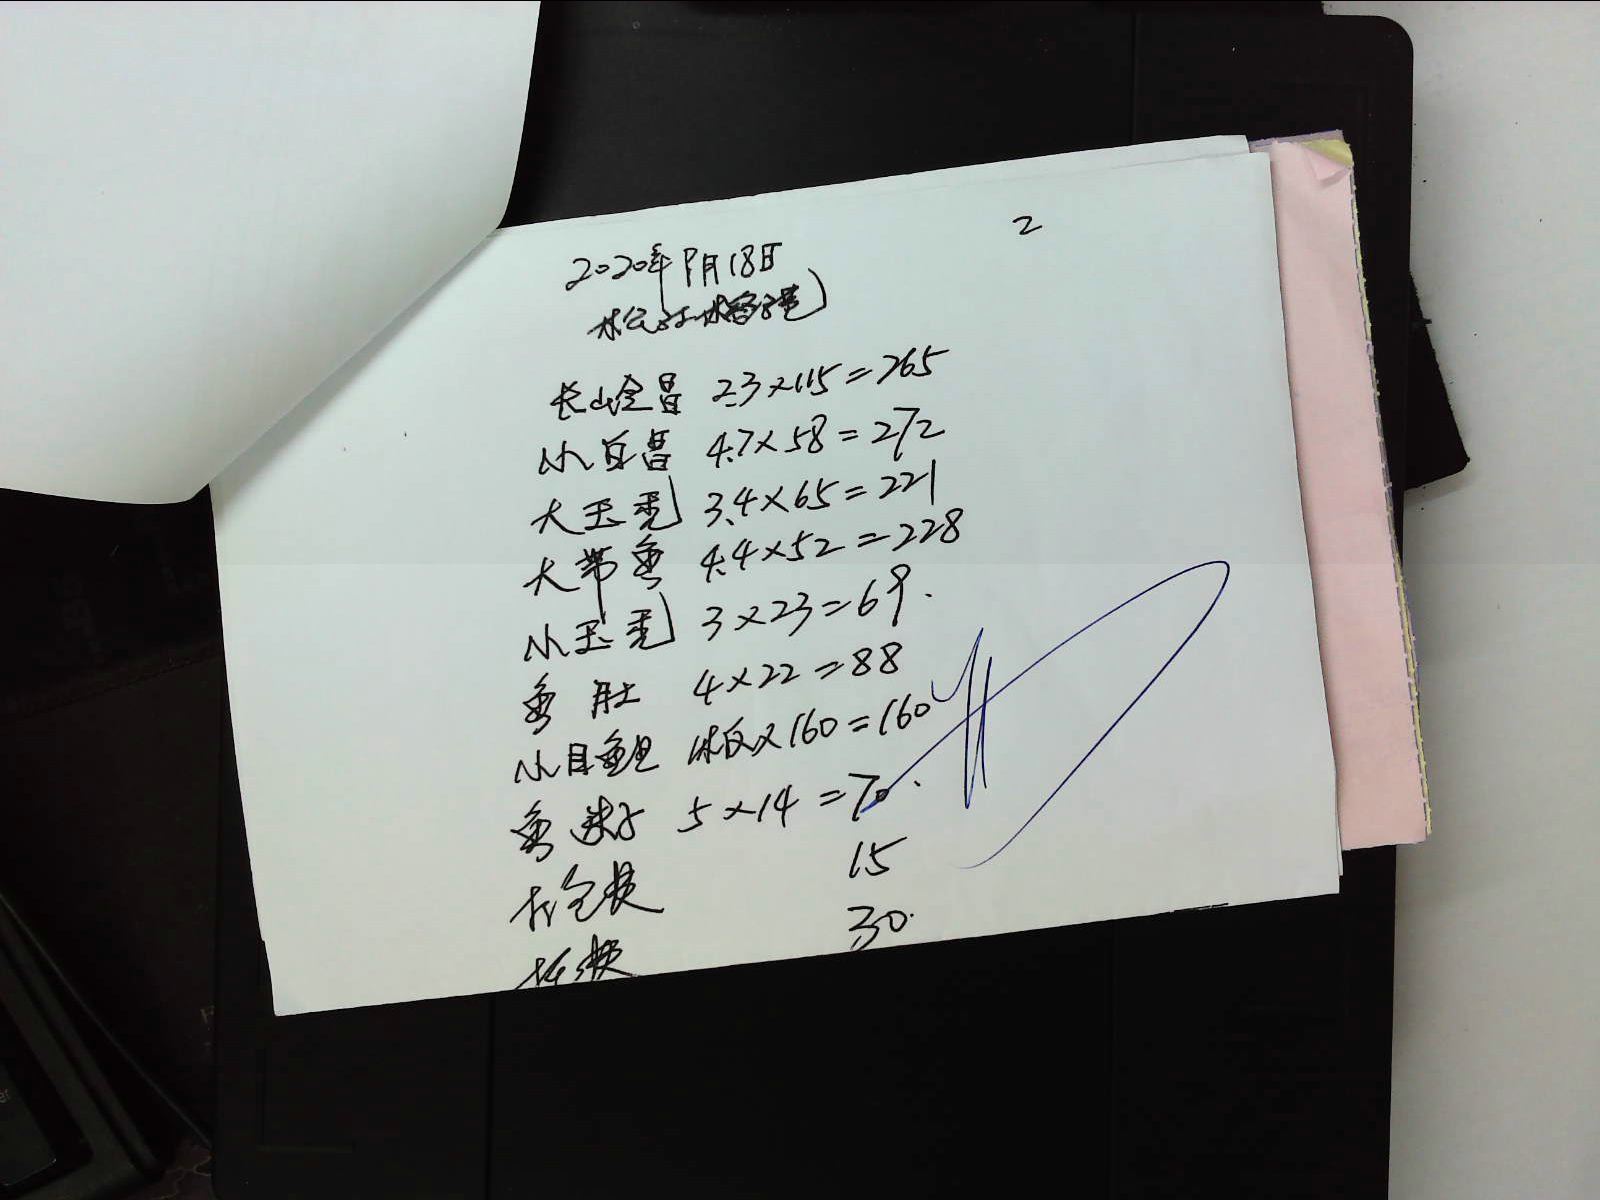 2
2020年9月18日
长山全昌 2.3×115=265
小白昌 4.7×58=272
大玉秃 3.4×65=221
大带鱼 4.4×52=228
小玉秃 3×23=69.
鱼肚 4×22=88
小目鲍 ×160=160
鱼 5×14=70.
打包费 15
30.